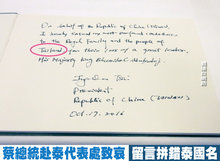 On behalf of the Republic of China (Taiwan),
I hereby extend my most profound condolences
to the Royal Family and the people of
for their loss of a great leader,
His Majesty King Bhumibol Adulyadej.
Ing-Wen Tsai
President
Republic of China (Taiwan)
Oct. 17. 2016
蔡總統赴泰代表處致哀 留言拼錯泰國名